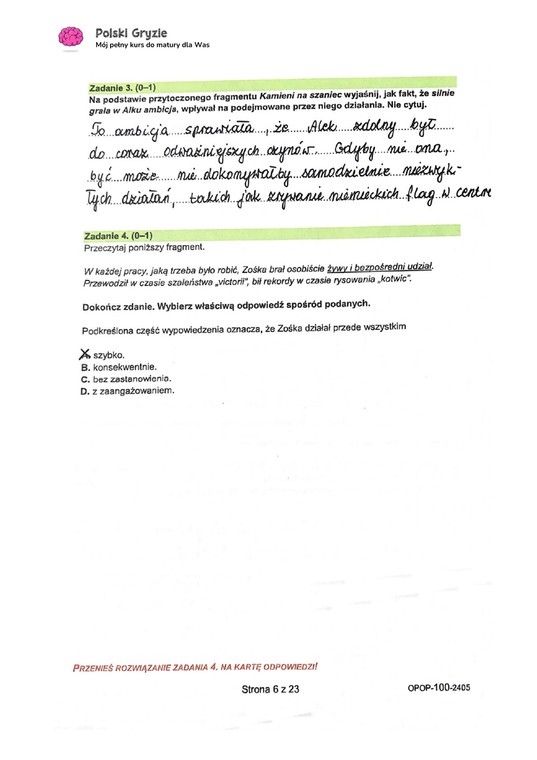 Polski Gryzie
Mój pełny kurs do matury dla Was
Zadanie 3. (0–1)
Na podstawie przytoczonego fragmentu Kamieni na szaniec wyjaśnij, jak fakt, że silnie
grała w Alku ambicja, wpływał na podejmowane przez niego działania. Nie cytuj.
To ambicja sprawiała, że Alek zdolny był
do coraz odważniejszych czynów. Gdyby nie ona,
być może nie dokonywałby samodzielnie niezwyk-
łych działań, takich jak zrywanie niemieckich flag w centre
Zadanie 4. (0–1)
Przeczytaj poniższy fragment.
W każdej pracy, jaką trzeba było robić, Zośka brał osobiście żywy i bezpośredni udział.
Przewodził w czasie szaleństwa „victorii”, bił rekordy w czasie rysowania „kotwic”.
Dokończ zdanie. Wybierz właściwą odpowiedź spośród podanych.
Podkreślona część wypowiedzenia oznacza, że Zośka działał przede wszystkim
A. szybko.
B. konsekwentnie.
C. bez zastanowienia.
D. z zaangażowaniem.
PRZENIEŚ ROZWIĄZANIE ZADANIA 4. NA KARTĘ ODPOWIEDZI!
Strona 6 z 23
OPOP-100-2405